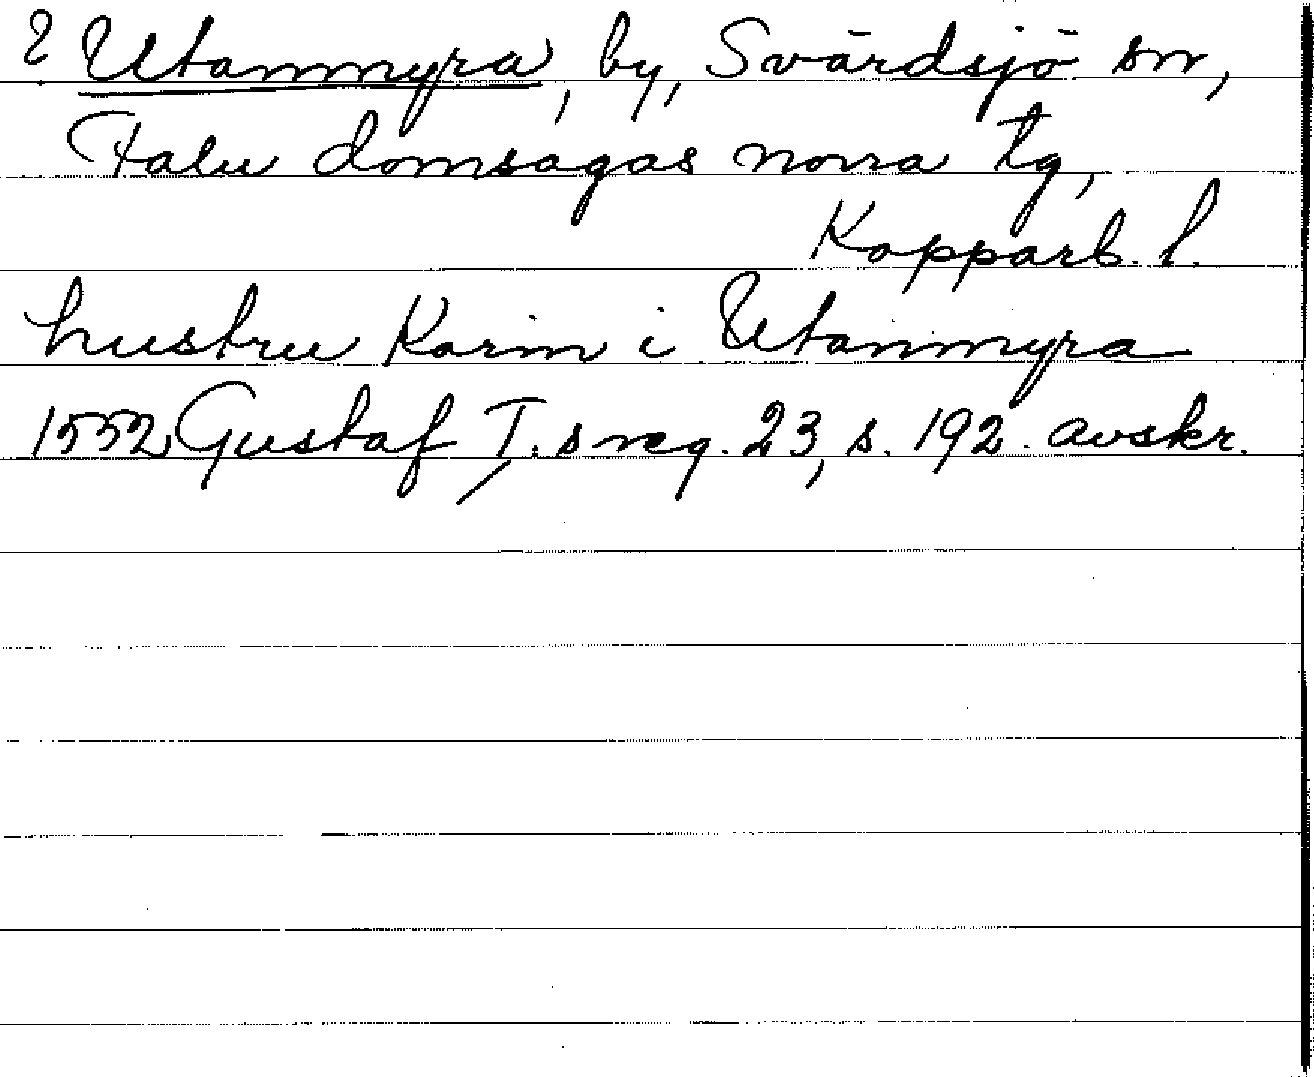 ? Utanmyra, by, Svärdsjö sn,
Falu domsagas norra tg,
Kopparb. l.
hustru Karin i Utanmyra
1552 Gustaf I. s reg. 23, s. 192. avskr.